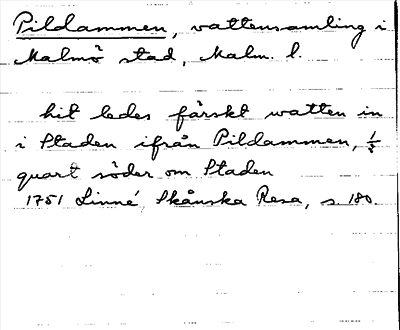 Pildammen, vattensamling i
Malmö stad, Malm. l.
hit ledes färskt watten in
i Staden ifrån Pildammen, 1/8
quart söder om Staden
1751 Linné, Skånska Resa, s. 180.